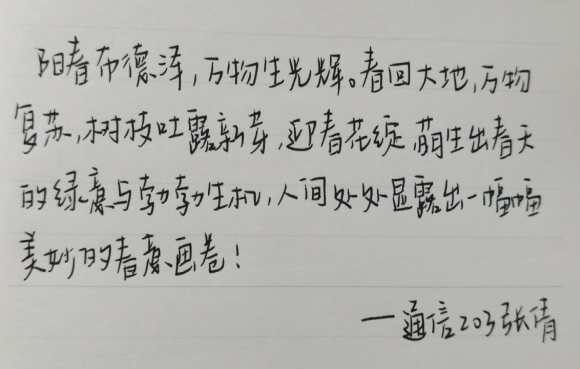 阳春布德泽,万物生光辉。春回大地,万物
复苏,树枝吐露新芽,迎春花绽萌生出春天
的绿意与勃勃生机,人间处处显露出一幅幅
美妙的春意画卷!
一通信203张倩